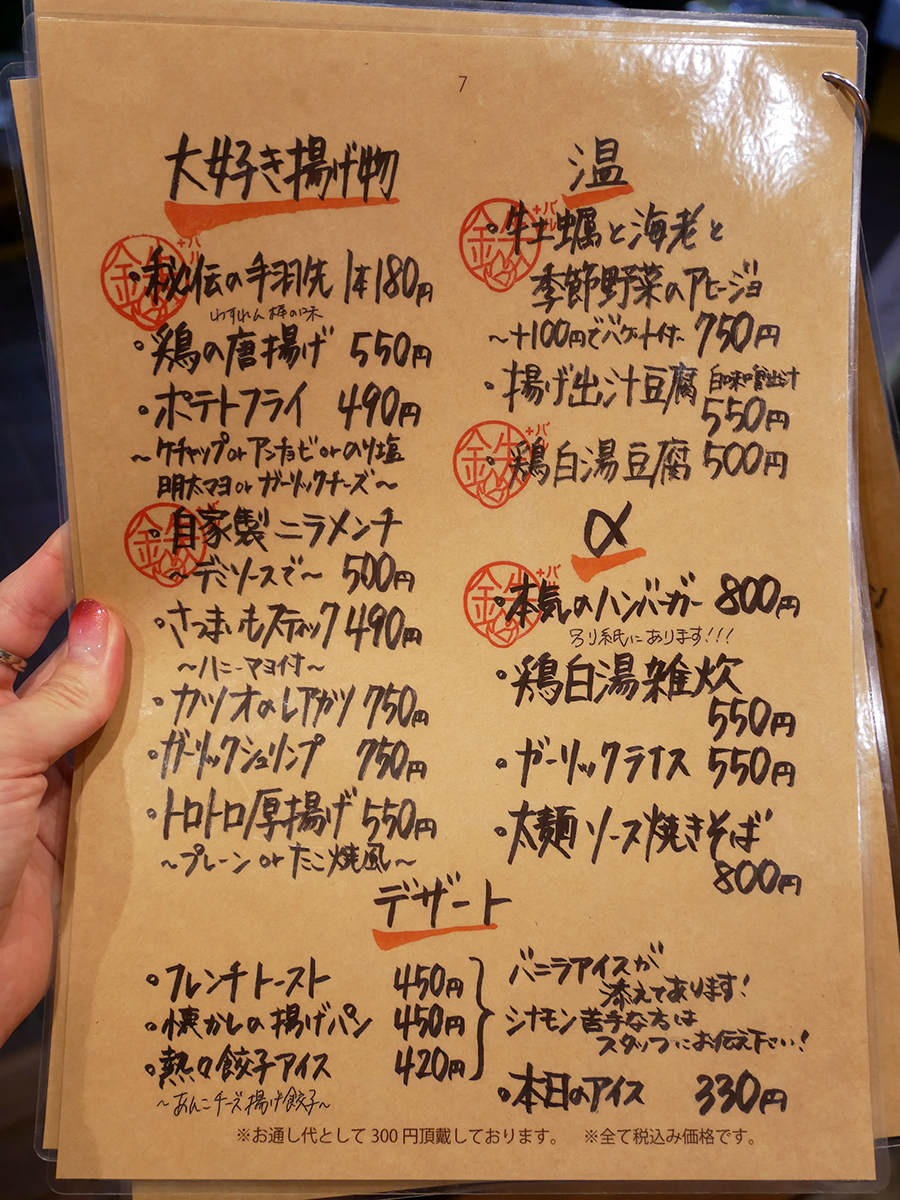 7
大好き揚げ物
・秘伝の手羽先 1本180円
・鶏の唐揚げ 550円
・ポテトフライ 490円
～ケチャップorアンチョビorのり塩
明太マヨorガーリックチーズ～
・自家製ニラメンチ
～デミソースで～ 500円
・さつまいもスティック490円
～ハニーマヨ付～
・カツオのレアカツ 750円
・ガーリックシュリンプ 750円
・トロトロ厚揚げ 550円
～プレーン or たこ焼風～
温
・牡蠣と海老と
季節野菜のアヒージョ
～+100円でバゲット付～ 750円
・揚げ出汁豆腐 白味噌出汁
550円
・鶏白湯豆腐 500円
α
・本気のハンバーガー 800円
別紙にあります!!!
・鶏白湯雑炊
550円
・ガーリックライス 550円
・太麺ソース焼きそば
800円
デザート
・フレンチトースト 450円
・懐かしの揚げパン 450円
・熱々餃子アイス 420円
～あんこチーズ揚げ餃子～
バニラアイスが
添えてあります!
シナモン苦手な方は
スタッフにお伝え下さい!
・本日のアイス 330円
※お通し代として300円頂戴しております。 ※全て税込み価格です。